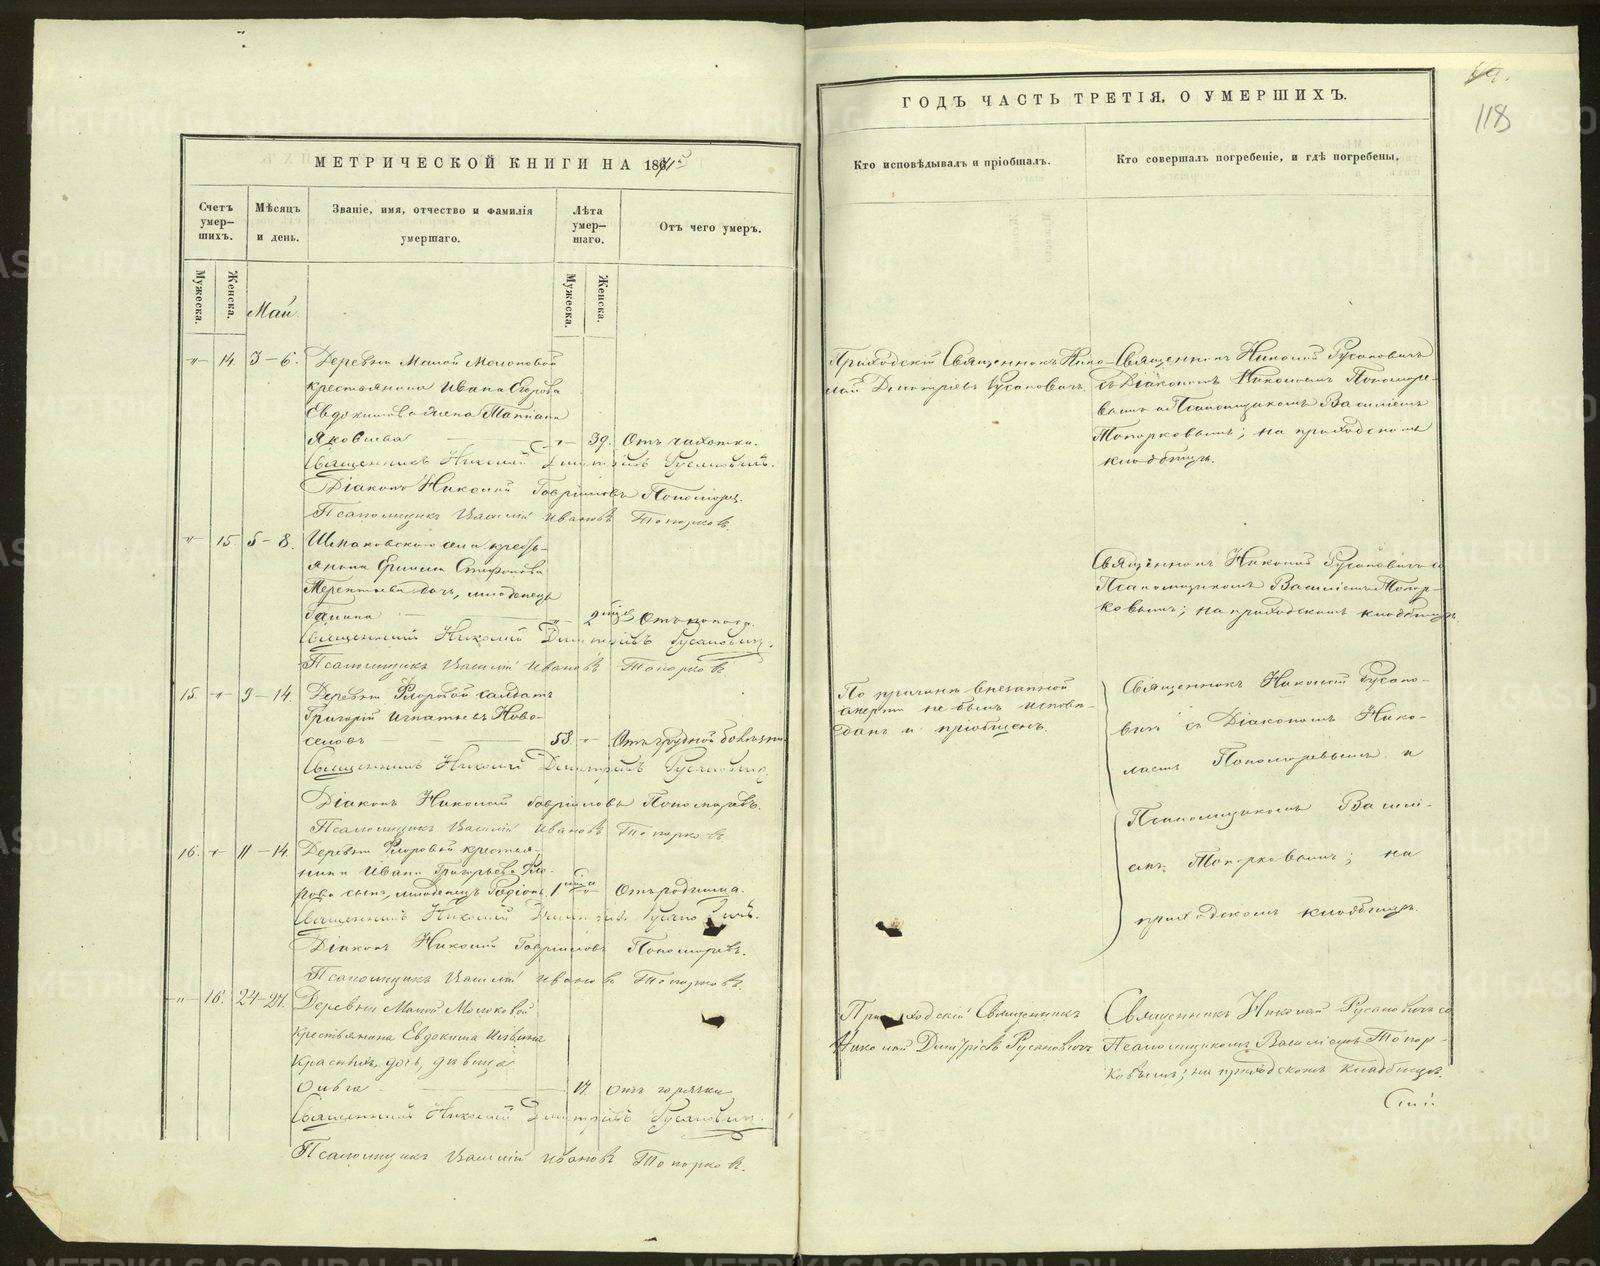 118
МЕТРИЧЕСКОЙ КНИГИ НА 1871 й
ГОДЪ ЧАСТЬ ТРЕТІЯ, О УМЕРШИХЪ.
Счетъ умер-шихъ.
Мѣсяцъ и день.
Званіе, имя, отчество и фамилія умершаго.
Лѣта умер-шаго.
Отъ чего умеръ.
Кто исповѣдывалъ и пріобщалъ.
Кто совершалъ погребеніе, и гдѣ погребены.
Мужеска.
Женска.
Мужеска.
Женска.
Май.
"
14.
3 – 6.
Деревни Малой Молоковой
крестьянина Ивана Егорова
Евдокимова жена Татіана
Яковлева
"
39.
Отъ чахотки.
Священникъ Николай Димитріевъ Русановичъ.
Діаконъ Николай Гавріиловъ Пономарев.
Псаломщикъ Василій Ивановъ Топорковъ.
Приходскій Священникъ Нико-
лай Дмитріевъ Русановичъ
Священникъ Николай Русановичъ
съ Діакономъ Николаемъ Пономаре-
вымъ и Псаломщикомъ Василіемъ
Топорковымъ; на приходскомъ
кладбищѣ.
"
15.
5 – 8.
Шпаковскаго села кресть-
янина Стефанова
Терентьева дочь, младенецъ
Галина
"
2 мѣс
Отъ поноса.
Священникъ Николай Димитріевъ Русановичъ.
Псаломщикъ Василій Ивановъ Топорковъ
Священникъ Николай Русановичъ со
Псаломщикомъ Василіемъ Топор-
ковымъ; на приходскомъ кладбищѣ.
15.
"
9 – 14.
Деревни Флоровой солдатъ
Григорій Игнатьевъ Ново-
селовъ
53.
"
Отъ грудной болѣзни.
Священникъ Николай Димитріевъ Русановичъ.
Діаконъ Николай Гавріиловъ Пономаревъ.
Псаломщикъ Василій Ивановъ Топорковъ.
По причинѣ внезапной
смерти не былъ исповѣ-
данъ и пріобщенъ.
Священникъ Николай Русано-
вичъ съ Діакономъ Нико-
лаемъ Пономаревымъ и
Псаломщикомъ Василі-
емъ Топорковымъ; на
приходскомъ кладбищѣ.
16.
"
11 – 14.
Деревни Флоровой крестья-
нина Ивана Григорьева Фло-
рова сынъ, младенецъ Родіонъ
1 мѣсяца
"
Отъ родимца.
Священникъ Николай Димитріевъ Русановичъ.
Діаконъ Николай Гавріиловъ Пономаревъ.
Псаломщикъ Василій Ивановъ Топорковъ.
"
16.
24 – 27.
Деревни Малой Молоковой
крестьянина Евдокима
Красныхъ дочь, дѣвица
Ольга
17.
Отъ горячки
Священникъ Николай Димитріевъ Русановичъ.
Псаломщикъ Василій Ивановъ Топорковъ.
Приходскій Священникъ
Николай Димитріевъ Русановичъ
Священникъ Николай Русановичъ со
Псаломщикомъ Василіемъ Топор-
ковымъ; на приходскомъ кладбищѣ.
METRIKI.GASO-URAL.RU